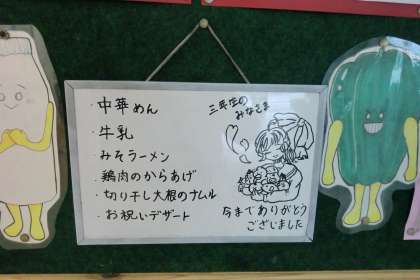 ・中華めん
・牛乳
・みそラーメン
・鶏肉のからあげ
・切り干し大根のナムル
・お祝いデザート
三年生の
みなさま
今までありがとう
ございました